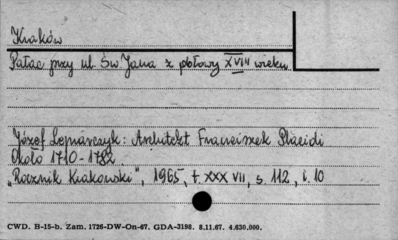 Kraków
Pałac przy ul Św Jana z połowy XVIII wieku
Józef Lepiarczyk: Architekt Franciszek Placidi
Około 1710-1782
„Rocznik Krakowski", 1965, t XXXVII, s. 112, i. 10
CWD. B-15-b. Zam. 1726-DW-On-67. GDA-3198. 8.11.67. 4.630.000.